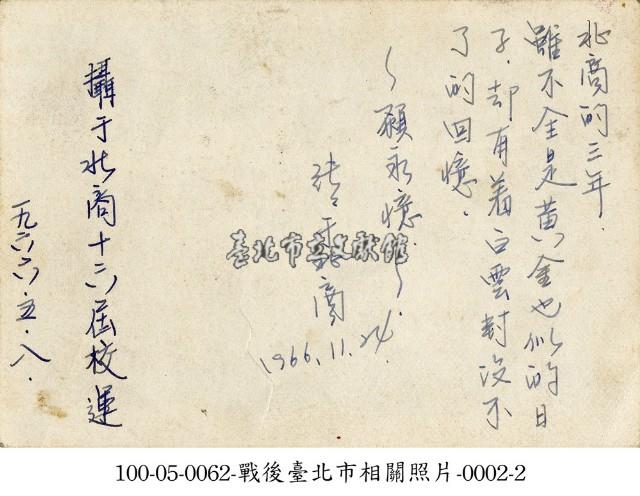 北商的三年.
雖不全是黃金也似的日
子.却有着白雲封沒不
了的回憶.
~願永憶~
于北商
1966.11.24.
攝于北商十六屆校運
一九六六.五.八.
臺北市立文獻館
100-05-0062-戰後臺北市相關照片-0002-2